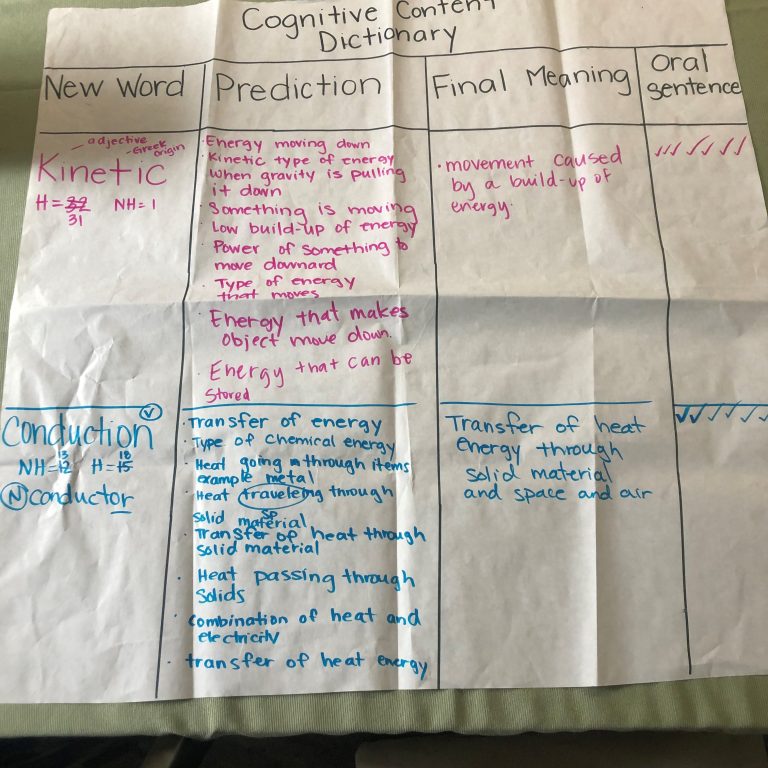 Cognitive Content
Dictionary
New Word
Prediction
Final Meaning
Oral
sentence
- adjective
- Greek
origin
Kinetic
H = 32 NH = 1
31
· Energy moving down
· Kinetic type of energy
when gravity is pulling
it down
· Something is moving
· Low build-up of energy
· Power of something to
move downard
· Type of energy
that moves
· Energy that makes
object move down.
· Energy that can be
stored
· movement caused
by a build-up of
energy.
V
Conduction
13 18
NH = 12 H = 15
N conductor
· Transfer of energy
· Type of chemical energy
· Heat going through items
example metal
· Heat traveleing through
sp
solid material
· Transfer of heat through
solid material
· Heat passing through
Solids
· combination of heat and
electricity
· transfer of heat energy
Transfer of heat
energy through
solid material
and space and air